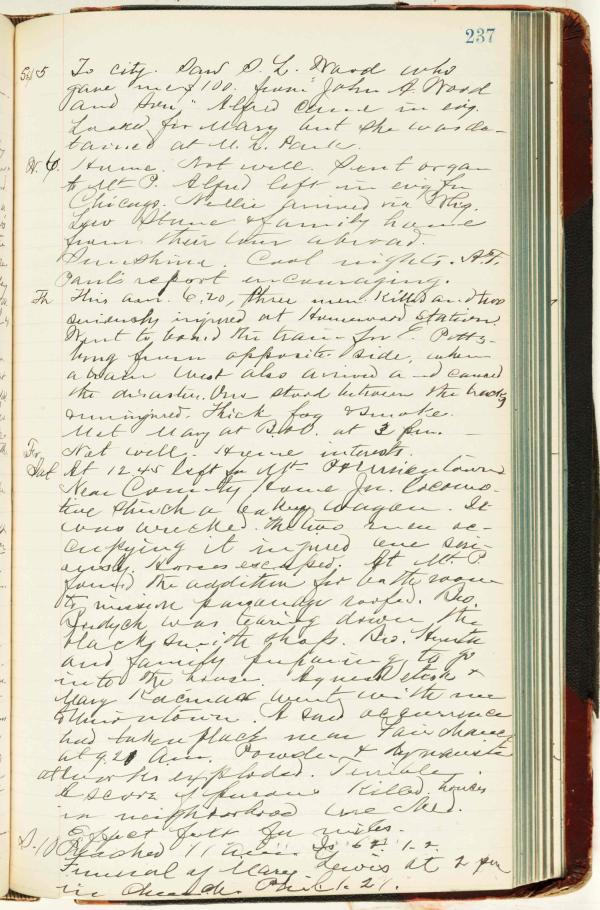 237
5 To city. Saw S. L. Wood who
gave me $100. from "John A. Wood
and Son," Alfred came in evg.
Looked for Mary but she was de-
tained at M. L. Park.
W. 6. Home. Not well. Sent organ
to Mt. P. Alfred left in evg for
Chicago. Nellie arrived via
Stone & family home
from their tour abroad.
Sunshine. Cool nights.
Paul's report encouraging.
Th This a.m. 6.20, three men killed and two
seriously injured at Homewood Station.
Went to board the train for E. Pitts-
burg from opposite side, when
a train west also arrived and caused
the disaster. One stood between the tracks
uninjured. Thick fog & smoke.
Met Mary at B&O. at 3 p.m.
Fr. Not well. Home interests.
Sat At 12 45 left for Mt. P & Uniontown
Near County Home Jn. locomo-
tive struck a bakery wagon. It
was wrecked. The two men oc-
cupying it injured one seri-
ously. Horses escaped. At Mt. P.
found the addition for bath room
to mission parsonage roofed. Bro.
was tearing down the
blacksmith shop. Bro.
and family preparing to go
into the house. Agnes &
Mary went with me
to Uniontown. A sad occurrence
had taken place near Fairchance
at 9.20 a.m. Powder & dynamite
works exploded. Terrible.
A score of persons killed. houses
in neighborhood wrecked.
Effect felt for miles.
S. 10 Preached 11 a.m. Is 62. 1-2.
Funeral of Mary Lewis at 2 pm
in Church. Phil. 1. 21.